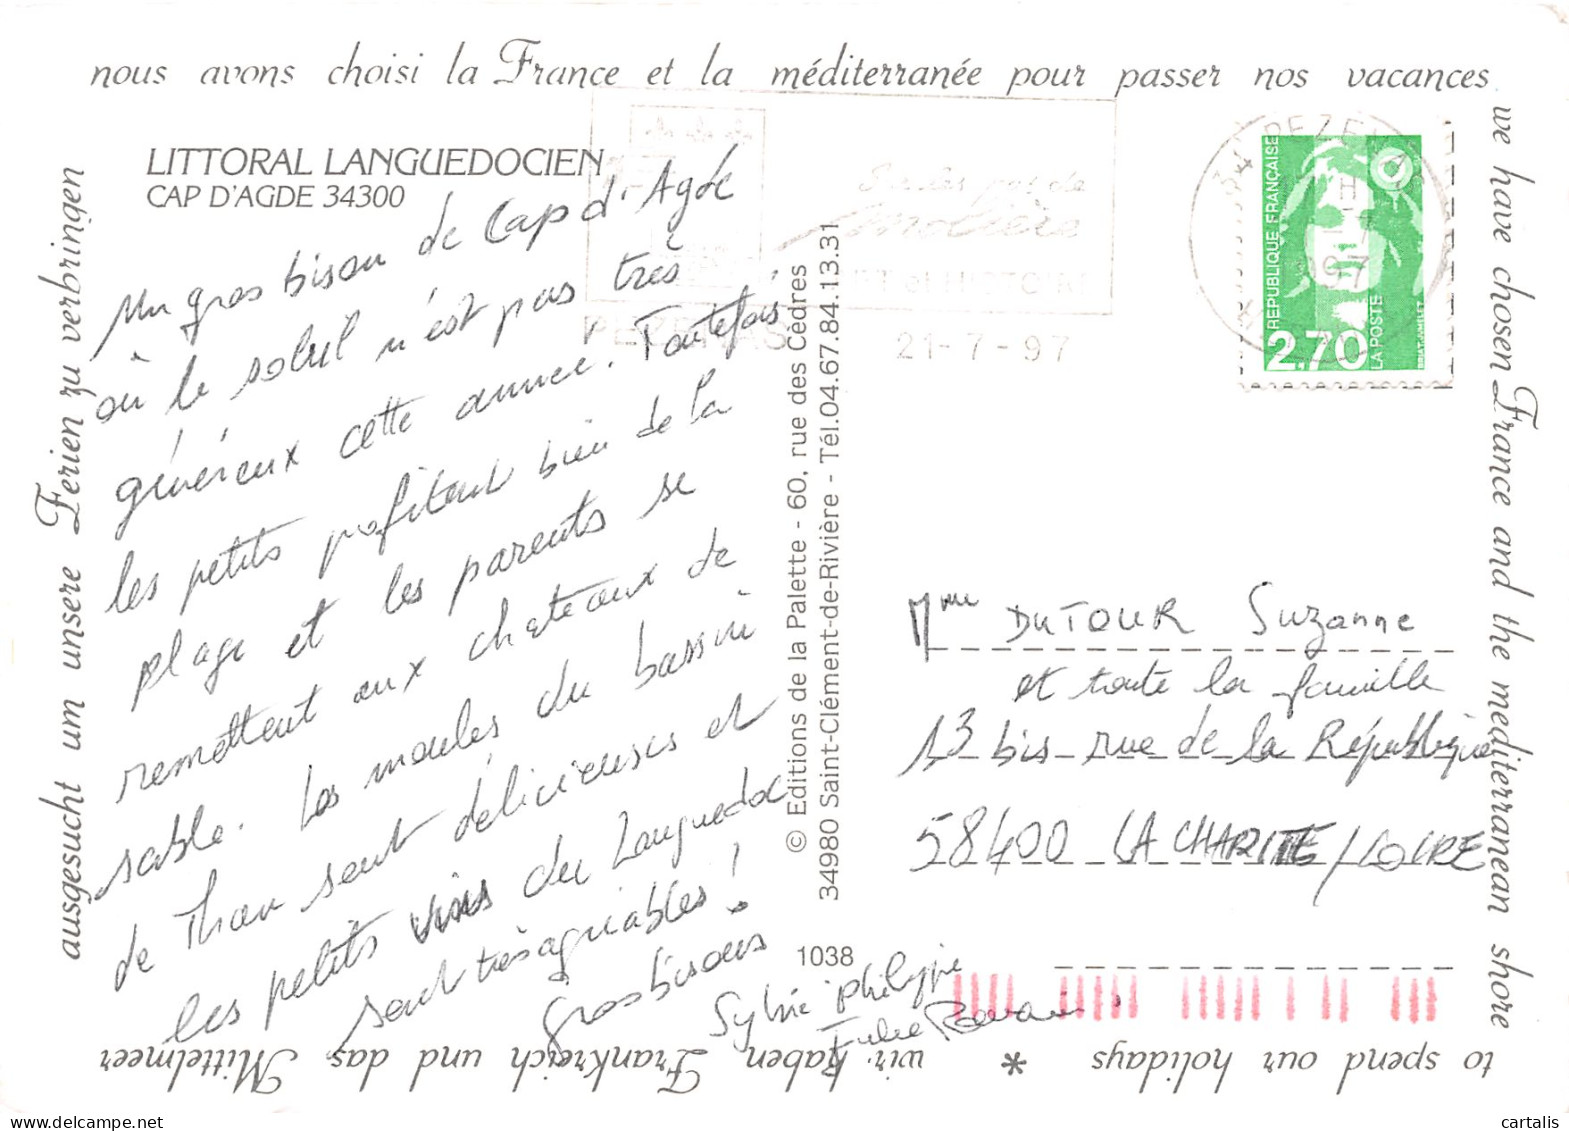 nous avons choisi la France et la méditerranée pour passer nos vacances
we have chosen France and the mediterranean shore
to spend our holidays * wir haben Frankreich und das Mittelmeer
ausgesucht um unsere Ferien zu verbringen
LITTORAL LANGUEDOCIEN
CAP D'AGDE 34300
Un gros bisou de Cap d'Agde
où le soleil n'est pas très
généreux cette année. Toutefois
les petits profitent bien de la
plage et les parents se
remettent aux chateaux de
sable. Les moules du bassin
de Thau sont délicieuses et
les petits vins du Languedoc
sont très agréables !
Gros bisous
Sylvie Philippe
Romain
© Editions de la Palette - 60, rue des Cèdres
34980 Saint-Clément-de-Rivière - Tél.04.67.84.13.31
1038
Sur les pas de
Molière
ART et HISTOIRE
PEZENAS
21-7-97
34 PEZENAS
RÉPUBLIQUE FRANÇAISE
2,70
LA POSTE
Mme DUTOUR Suzanne
et toute la famille
13 bis rue de la République
58400 LA CHARITE / LOIRE
cartalis